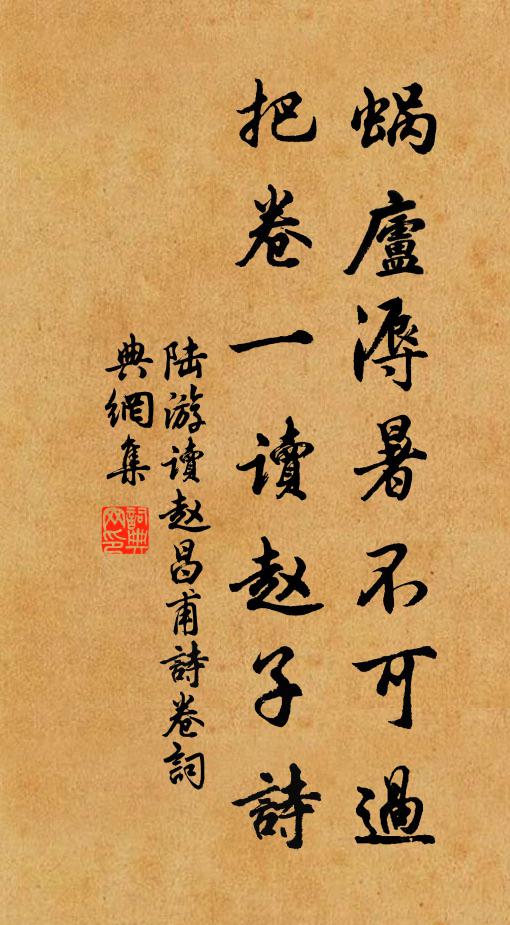 蜗廬溽暑不可過
把卷一讀赵子詩
陆游讀赵昌甫詩卷詞
典網集
詞典网印